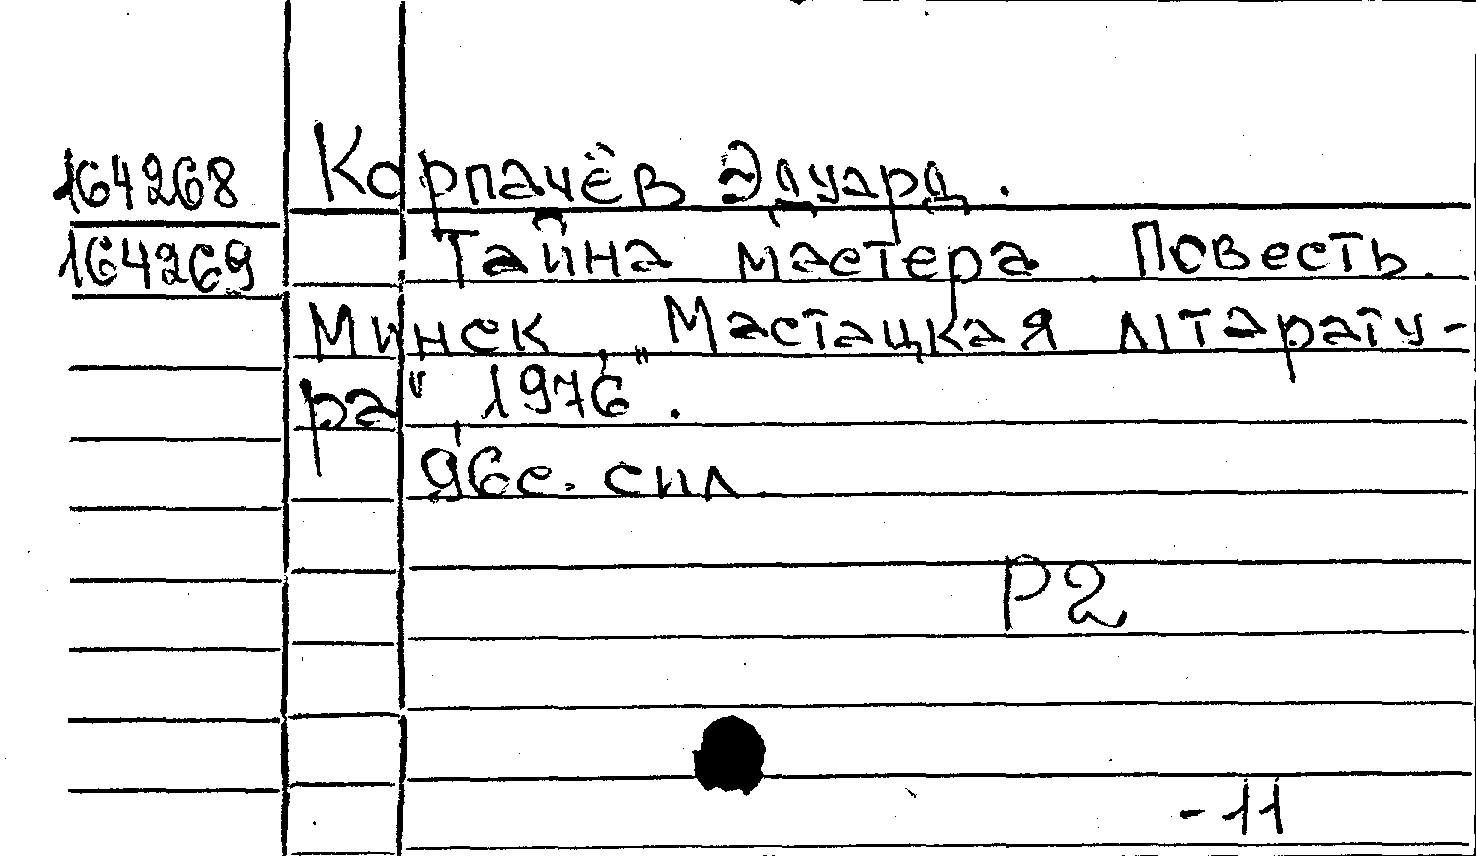 164268 Корпачёв Эдуард.
164269 Тайна мастера. Повесть.
Минск, „Мастацкая літарату-
ра", 1976.
96с. сил.
Р2
-11